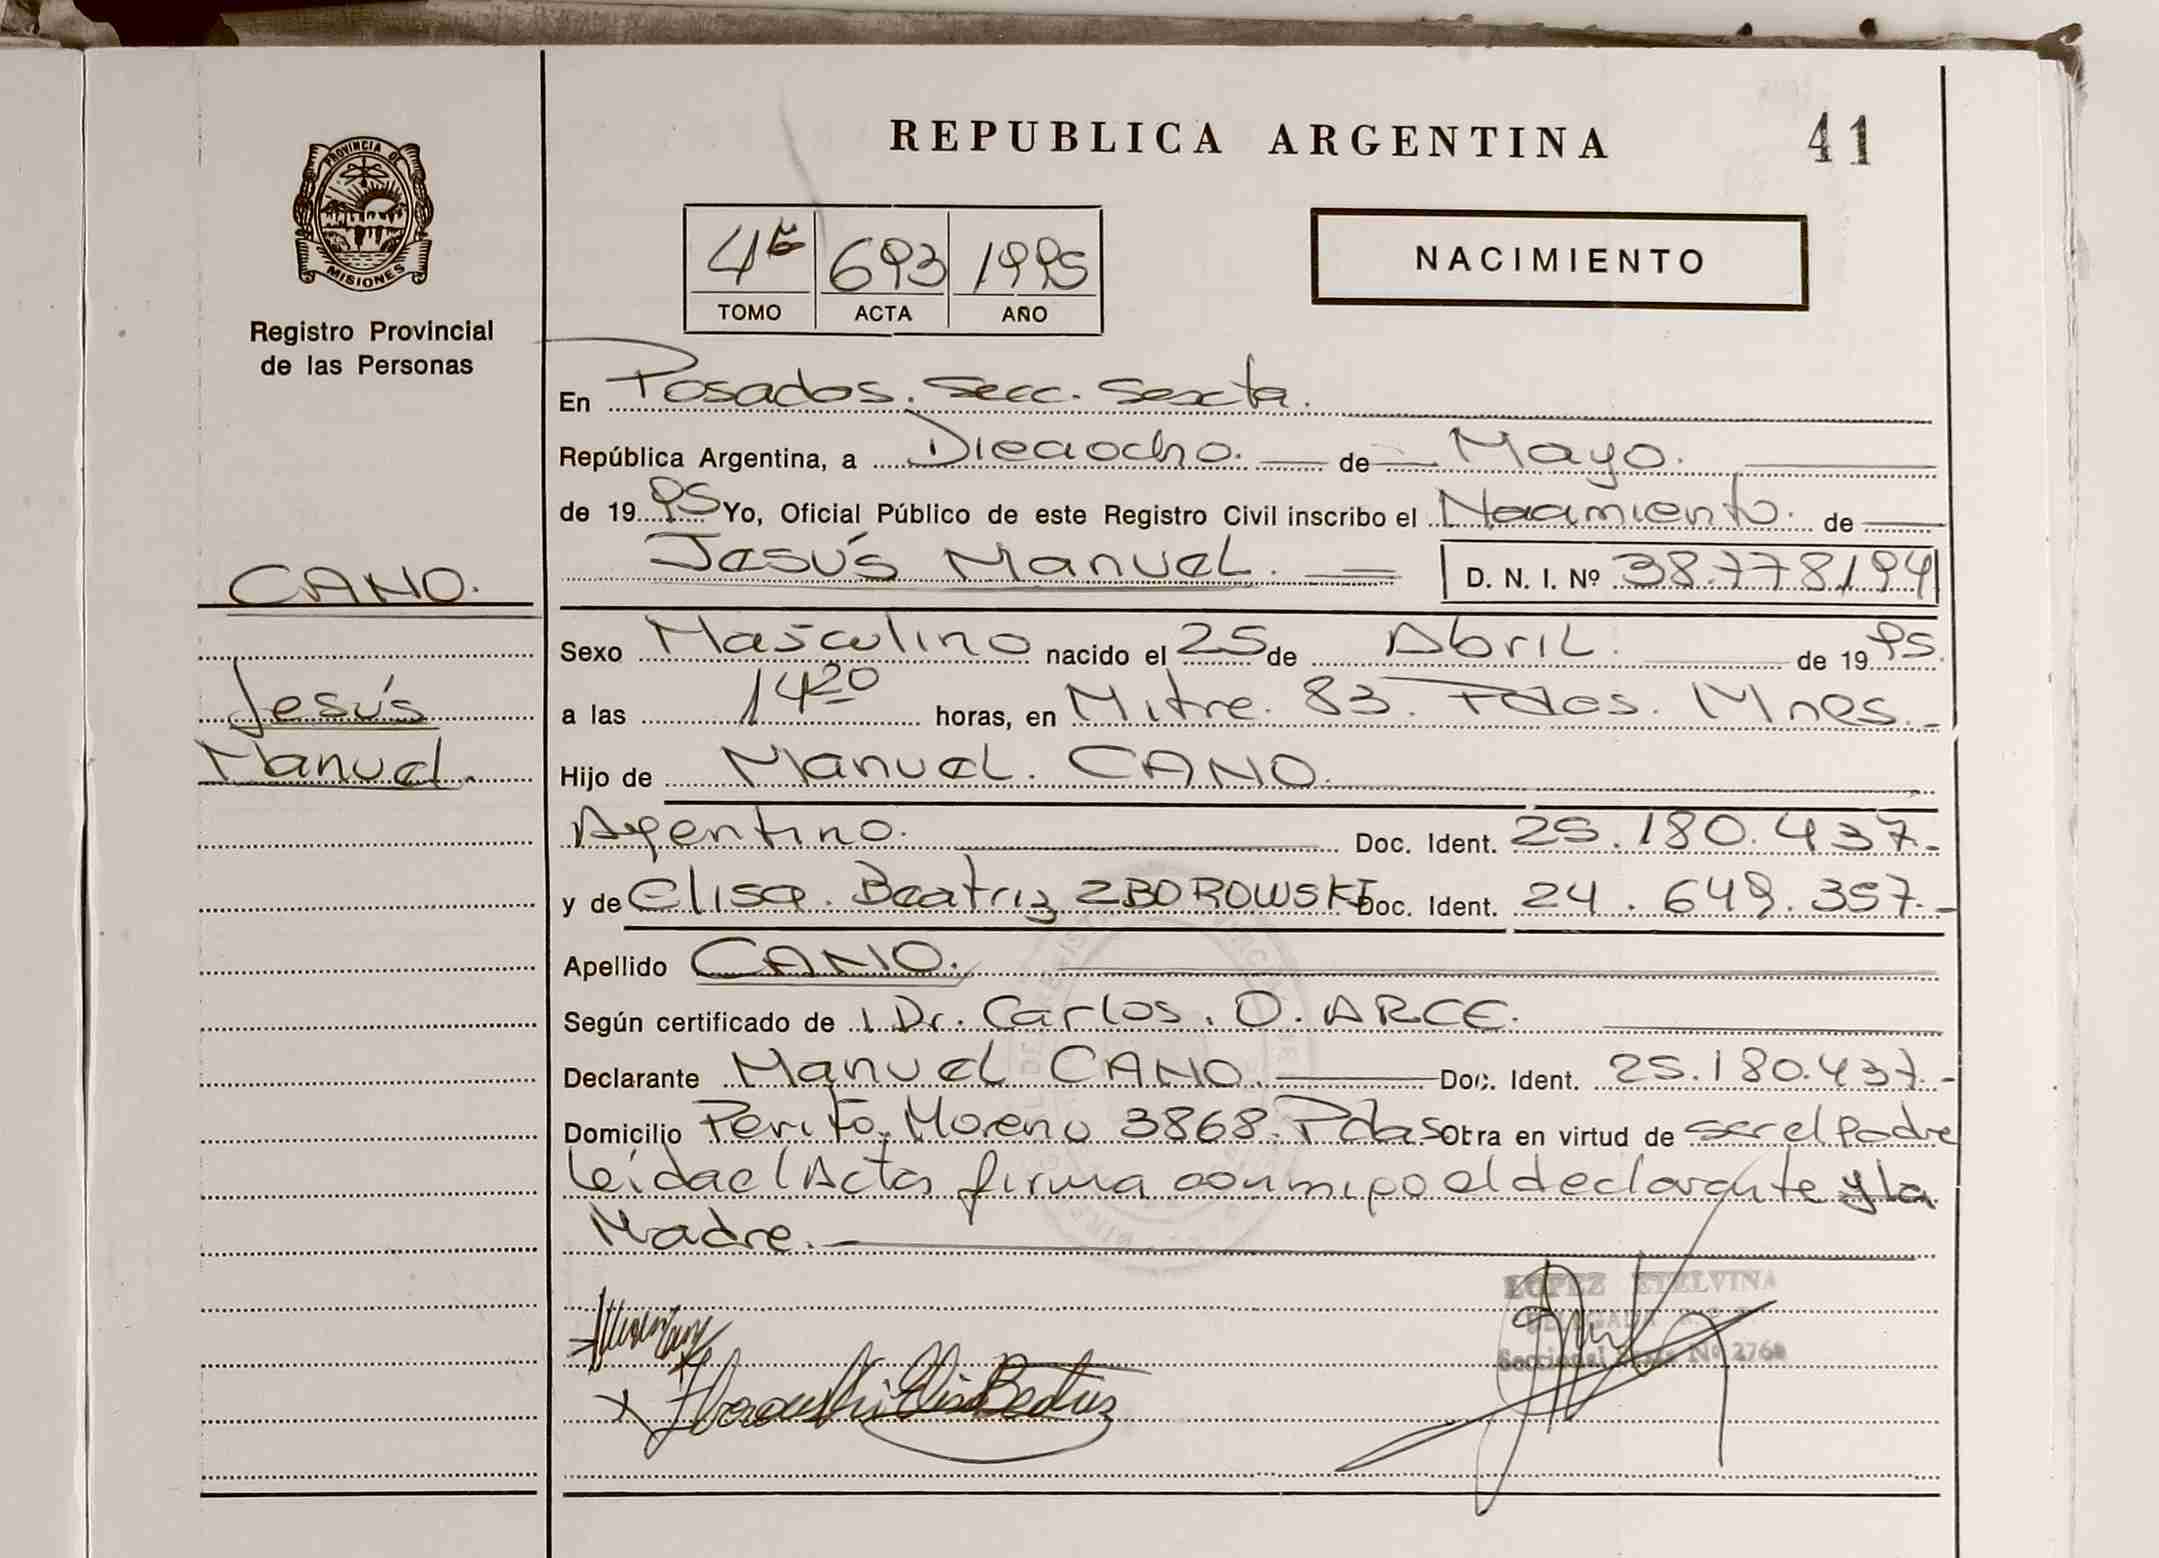 REPUBLICA ARGENTINA
41
PROVINCIA DE
MISIONES
Registro Provincial
de las Personas
4to 693 1995
TOMO ACTA AÑO
NACIMIENTO
En Posadas. Secc. Sexta.
República Argentina, a Dieciocho. de Mayo.
de 1995 Yo, Oficial Público de este Registro Civil inscribo el Nacimiento. de
Jesús Manuel. D. N. I. Nº 38.778194
CANO.
Jesús
Manuel.
Sexo Masculino nacido el 25 de Abril. de 1995.
a las 14 20 horas, en Mitre. 83. Pdas. Mnes.
Hijo de Manuel. CANO.
Agentino. Doc. Ident. 25.180.437.
y de Elisa. Beatriz ZBOROWSKI Doc. Ident. 24.649.357.
Apellido CANO.
Según certificado de Dr. Carlos. O. ARCE.
Declarante Manuel CANO. Doc. Ident. 25.180.437.
Domicilio Perito. Moreno 3868. Pdas Obra en virtud de ser el padre
Leida el Acta firma conmigo el declarante y la
Madre.
LOPEZ ETELVINA
DELEGADA
Seccional Sexta Nº 2768
Zborowski Elisa Beatriz